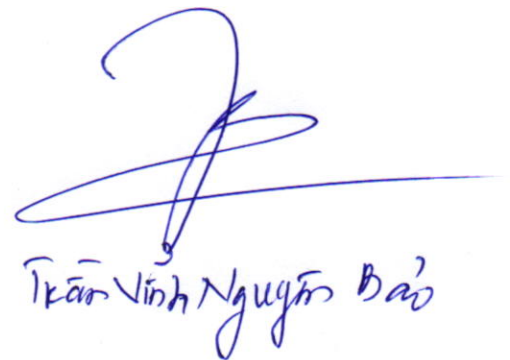 Trần Vĩnh Nguyên Bảo